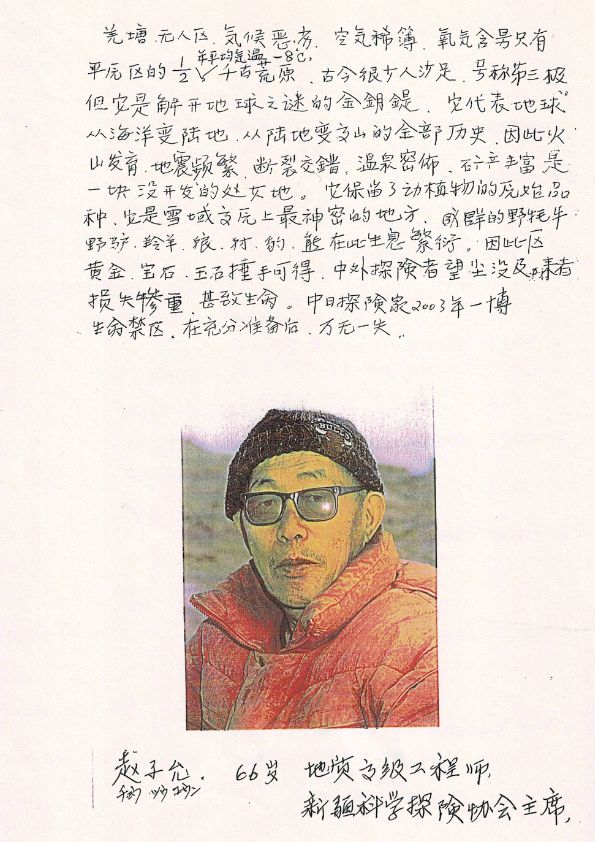 羌塘.无人区.气候恶劣. 空气稀簿. 氧气含另只有
年平均气温-8℃,
平原区的1/2 千古荒原. 古今很少人涉足. 号称第三极
但它是解开地球之谜的金钥鍉. 它代表地球
从海洋变陆地.从陆地变高山的全部历史.因此火
山发育.地震频繁.断裂交錯.温泉密佈.矿产丰富是
一块没开发的处女地。它保留了动植物的原始品
种.它是雪域高原上最神密的地方. 成群的野牦牛
野驴.羚羊.狼.豺.豹.熊在此生息繁衍。因此区
黄金.宝石.玉石捶手可得.中外探険者望尘没及.来者
损失惨重.甚致生命。中日探険家2003年一博
生命禁区.在充分准备后.万无一失..
BULLS
赵子允. 66岁 地质高级工程师,
チョウ ツウ ユウン
新疆科学探険协会主席,